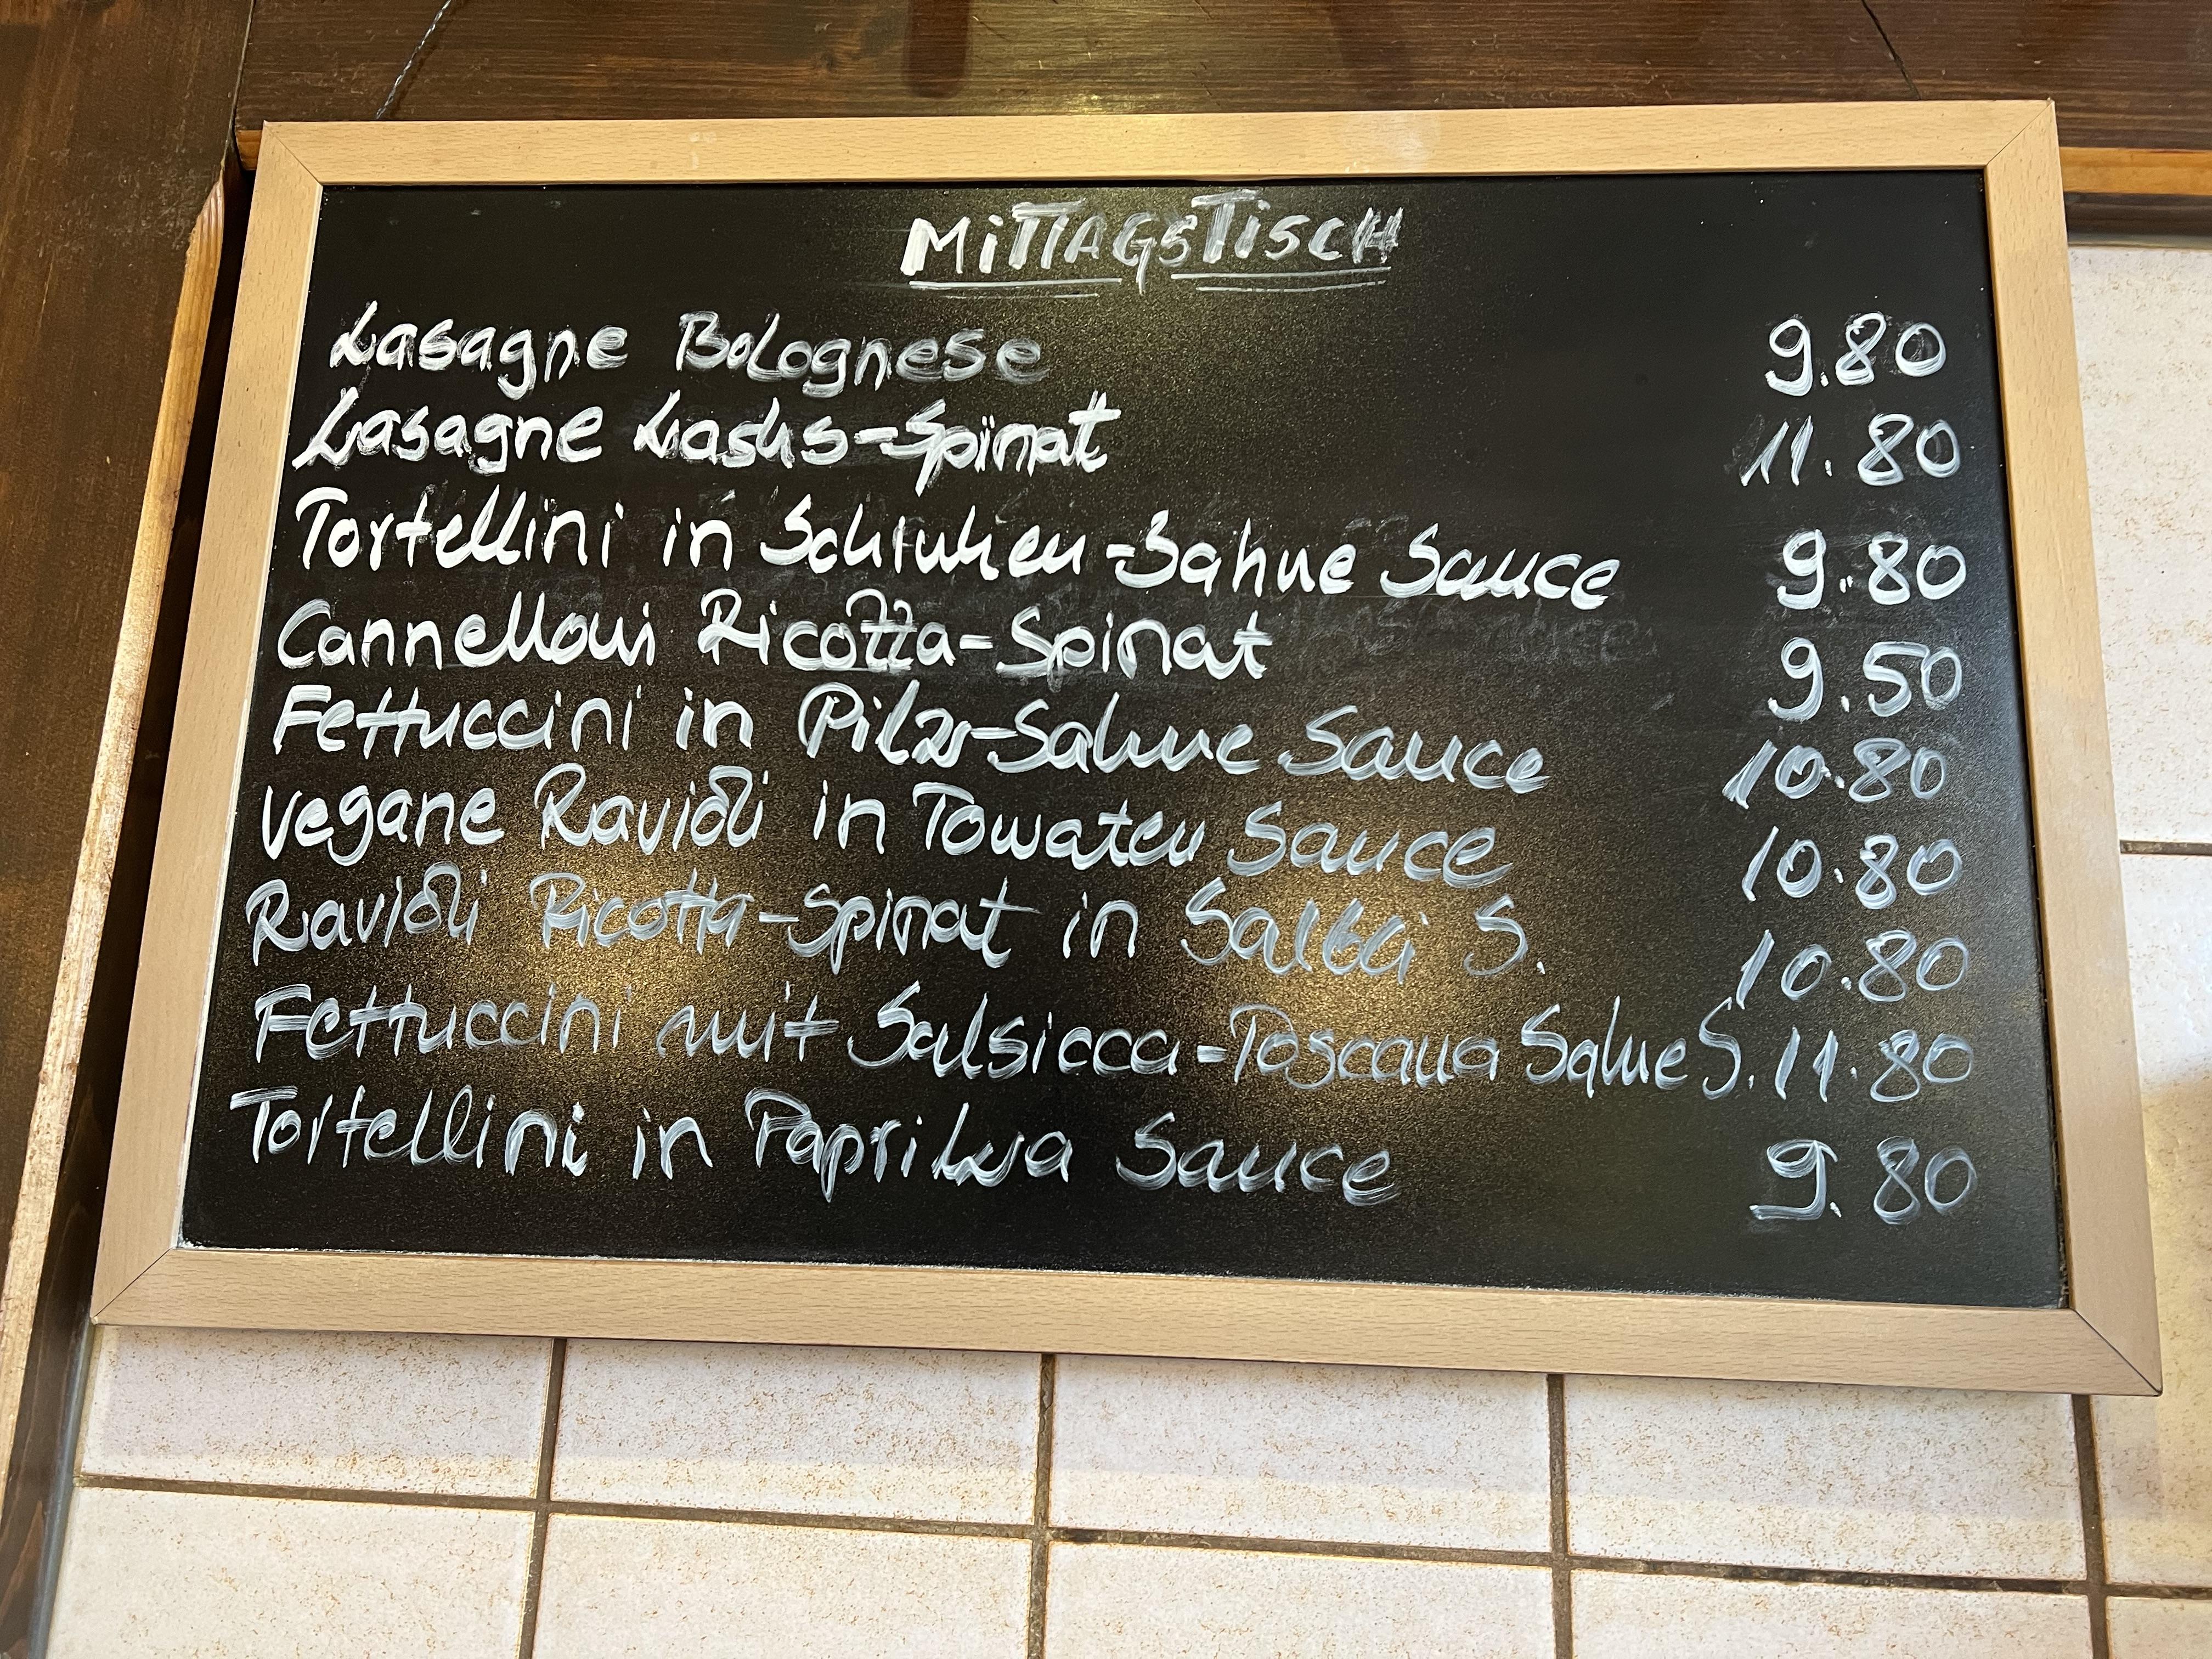 MITTAGSTISCH
Lasagne Bolognese 9.80
Lasagne Lachs-Spinat 11.80
Tortellini in Schinken-Sahne Sauce 9.80
Cannelloni Ricotta-Spinat 9.50
Fettuccini in Pilz-Sahne Sauce 10.80
Vegane Ravioli in Tomaten Sauce 10.80
Ravioli Ricotta-Spinat in Salbei S. 10.80
Fettuccini mit Salsicca-Toscana Sahne S. 11.80
Tortellini in Paprika Sauce 9.80